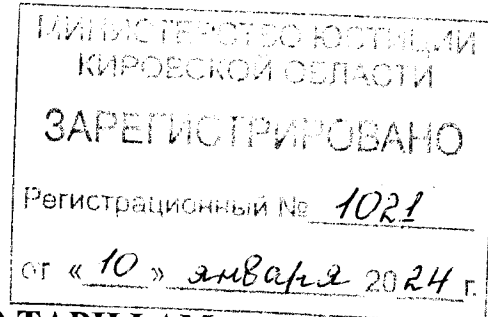 МИНИСТЕРСТВО ЮСТИЦИИ
КИРОВСКОЙ ОБЛАСТИ
ЗАРЕГИСТРИРОВАНО
Регистрационный № 1021
от « 10 » января 2024 г.